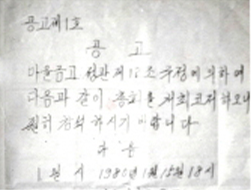 공고제1호
공고
마을금고 정관 제17조 규정에 의하여
다음과 같이 총회를 개최코저 하오니
필히 참석 하시기 바랍니다
다음
1 일시 1986년 1월 15일 18시